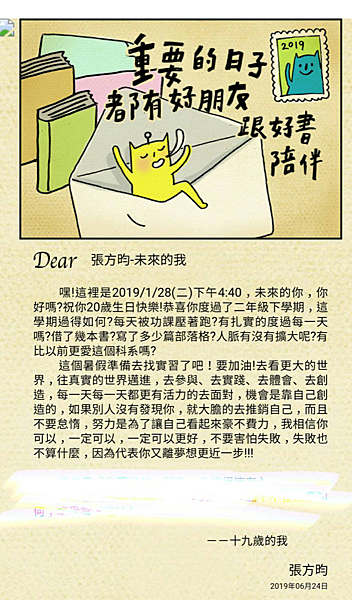 2019
重要的日子
都有好朋友
跟好書
陪伴
Dear 張方昀-未來的我
嘿!這裡是2019/1/28(二)下午4:40，未來的你，你
好嗎?祝你20歲生日快樂!恭喜你度過了二年級下學期，這
學期過得如何?每天被功課壓著跑?有扎實的度過每一天
嗎?借了幾本書?寫了多少篇部落格?人脈有沒有擴大呢?有
比以前更愛這個科系嗎?
這個暑假準備去找實習了吧！要加油!去看更大的世
界，往真實的世界邁進，去參與、去實踐、去體會、去創
造，每一天每一天都更有活力的去面對，機會是靠自己創
造的，如果別人沒有發現你，就大膽的去推銷自己，而且
不要怠惰，努力是為了讓自己看起來豪不費力，我相信你
可以，一定可以，一定可以更好，不要害怕失敗，失敗也
不算什麼，因為代表你又離夢想更近一步!!!
－－十九歲的我
張方昀
2019年06月24日